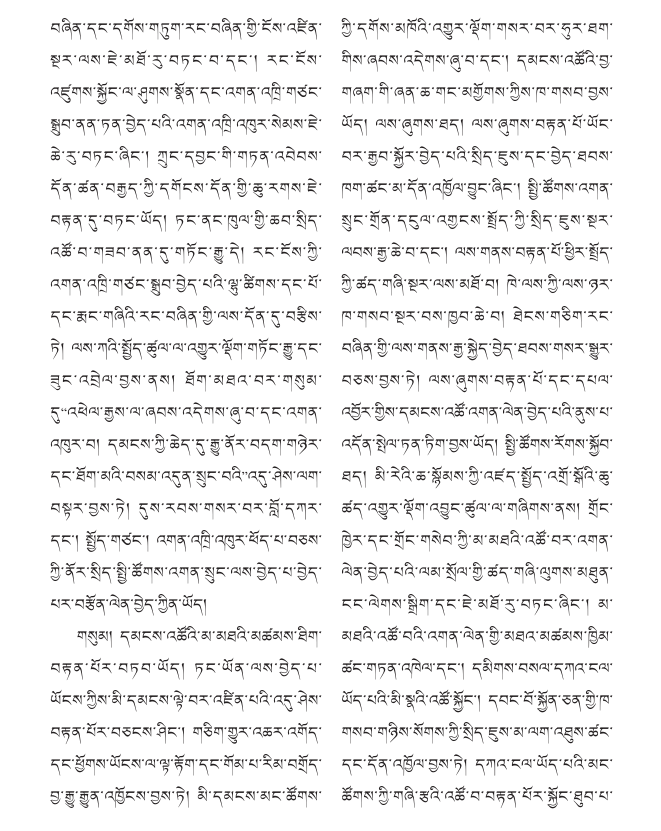 བཞིན་དང་དགོས་གཏུག་རང་བཞིན་གྱི་ངོས་འཛིན་
སྔར་ལས་ཇེ་མཐོ་རུ་བཏང་བ་དང་། རང་ངོས་
འཛུགས་སྐྱོང་ལ་ཤུགས་སྣོན་དང་འགན་འཁྲི་གཙང་
སྒྲུབ་ནན་ཏན་བྱེད་པའི་འགན་འཁྲི་འཁུར་སེམས་ཇེ་
ཆེ་རུ་བཏང་ཞིང་། ཀྲུང་དབྱང་གི་གཏན་འབེབས་
དོན་ཚན་བརྒྱད་ཀྱི་དགོངས་དོན་གྱི་ཆུ་རགས་ཇེ་
བརྟན་དུ་བཏང་ཡོད། ཏང་ནང་ཁུལ་གྱི་ཆབ་སྲིད་
འཚོ་བ་གཟབ་ནན་དུ་གཏོང་རྒྱུ་དེ། རང་ངོས་ཀྱི་
འགན་འཁྲི་གཙང་སྒྲུབ་བྱེད་པའི་ལྷུ་ཚིགས་དང་པོ་
དང་རྨང་གཞིའི་རང་བཞིན་གྱི་ལས་དོན་དུ་བརྩིས་
ཏེ། ལས་ཀའི་སྤྱོད་ཚུལ་ལ་འགྱུར་ལྡོག་གཏོང་རྒྱུ་དང་
ཟུང་འབྲེལ་བྱས་ནས། ཐོག་མཐའ་བར་གསུམ་
དུ་“འཕེལ་རྒྱས་ལ་ཞབས་འདེགས་ཞུ་བ་དང་འགན་
འཁུར་བ། དམངས་ཀྱི་ཆེད་དུ་རྒྱུ་ནོར་བདག་གཉེར་
དང་ཐོག་མའི་བསམ་འདུན་སྲུང་བའི”འདུ་ཤེས་ལག་
བསྟར་བྱས་ཏེ། དུས་རབས་གསར་བར་བློ་དཀར་
དང་། སྤྱོད་གཙང་། འགན་འཁྲི་འཁུར་ཕོད་པ་བཅས་
ཀྱི་ནོར་སྲིད་སྤྱི་ཚོགས་འགན་སྲུང་ལས་བྱེད་པ་བྱེད་
པར་བརྩོན་ལེན་བྱེད་ཀྱིན་ཡོད།
གསུམ། དམངས་འཚོའི་མ་མཐའི་མཚམས་ཐིག་
བརྟན་པོར་བཏབ་ཡོད། ཏང་ཡོན་ལས་བྱེད་པ་
ཡོངས་ཀྱིས་མི་དམངས་ལྟེ་བར་འཛིན་པའི་འདུ་ཤེས་
བརྟན་པོར་བཅངས་ཤིང་། གཅིག་གྱུར་འཆར་འགོད་
དང་ཕྱོགས་ཡོངས་ལ་ལྟ་རྟོག་དང་གོམ་པ་རིམ་བགྲོད་
བྱ་རྒྱུ་རྒྱུན་འཁྱོངས་བྱས་ཏེ། མི་དམངས་མང་ཚོགས་
ཀྱི་དགོས་མཁོའི་འགྱུར་ལྡོག་གསར་བར་ཧུར་ཐག་
གིས་ཞབས་འདེགས་ཞུ་བ་དང་། དམངས་འཚོའི་བྱ་
གཞག་གི་ཞན་ཆ་གང་མགྱོགས་ཀྱིས་ཁ་གསབ་བྱས་
ཡོད། ལས་ཞུགས་ཐད། ལས་ཞུགས་བརྟན་པོ་ཡོང་
བར་རྒྱབ་སྐྱོར་བྱེད་པའི་སྲིད་ཇུས་དང་བྱེད་ཐབས་
ཁག་ཚང་མ་དོན་འཁྱོལ་བྱུང་ཞིང་། སྤྱི་ཚོགས་འགན་
སྲུང་གྲོན་དངུལ་འགྱངས་སྤྲོད་ཀྱི་སྲིད་ཇུས་སྔར་
ལབས་རྒྱ་ཆེ་བ་དང་། ལས་གནས་བརྟན་པོ་ཕྱིར་སྤྲོད་
ཀྱི་ཚད་གཞི་སྔར་ལས་མཐོ་བ། ཁེ་ལས་ཀྱི་ལས་ཉར་
ཁ་གསབ་སྔར་བས་ཁྱབ་ཆེ་བ། ཐེངས་གཅིག་རང་
བཞིན་གྱི་ལས་གནས་རྒྱ་སྐྱེད་བྱེད་ཐབས་གསར་སྒྱུར་
བཅས་བྱས་ཏེ། ལས་ཞུགས་བརྟན་པོ་དང་དཔལ་
འབྱོར་གྱིས་དམངས་འཚོ་འགན་ལེན་བྱེད་པའི་ནུས་པ་
འདོན་སྤེལ་ཏན་ཏིག་བྱས་ཡོད། སྤྱི་ཚོགས་རོགས་སྐྱོབ་
ཐད། མི་རེའི་ཆ་སྙོམས་ཀྱི་འཛད་སྤྱོད་འགྲོ་སྒོའི་ཆུ་
ཚད་འགྱུར་ལྡོག་འབྱུང་ཚུལ་ལ་གཞིགས་ནས། གྲོང་
ཁྱེར་དང་གྲོང་གསེབ་ཀྱི་མ་མཐའི་འཚོ་བར་འགན་
ལེན་བྱེད་པའི་ལམ་སྲོལ་གྱི་ཚད་གཞི་ལུགས་མཐུན་
ངང་ལེགས་སྒྲིག་དང་ཇེ་མཐོ་རུ་བཏང་ཞིང་། མ་
མཐའི་འཚོ་བའི་འགན་ལེན་གྱི་མཐའ་མཚམས་ཁྱིམ་
ཚང་གཏན་འཁེལ་དང་། དམིགས་བསལ་དཀའ་ངལ་
ཡོད་པའི་མི་སྣའི་འཚོ་སྐྱོང་། དབང་པོ་སྐྱོན་ཅན་གྱི་ཁ་
གསབ་གཉིས་སོགས་ཀྱི་སྲིད་ཇུས་མ་ལག་འཐུས་ཚང་
དང་དོན་འཁྱོལ་བྱས་ཏེ། དཀའ་ངལ་ཡོད་པའི་མང་
ཚོགས་ཀྱི་གཞི་རྩའི་འཚོ་བ་བརྟན་པོར་སྐྱོང་ཐུབ་པ་